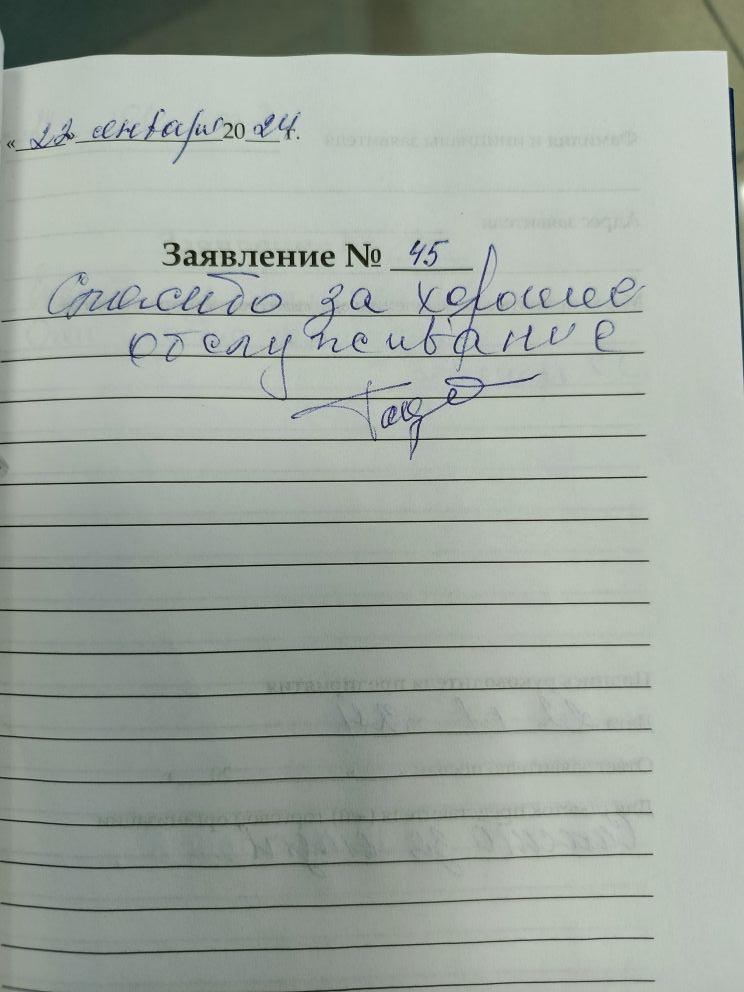 « 22 сентября 20 24 г.
Заявление № 45
Спасибо за хорошее
обслуживание